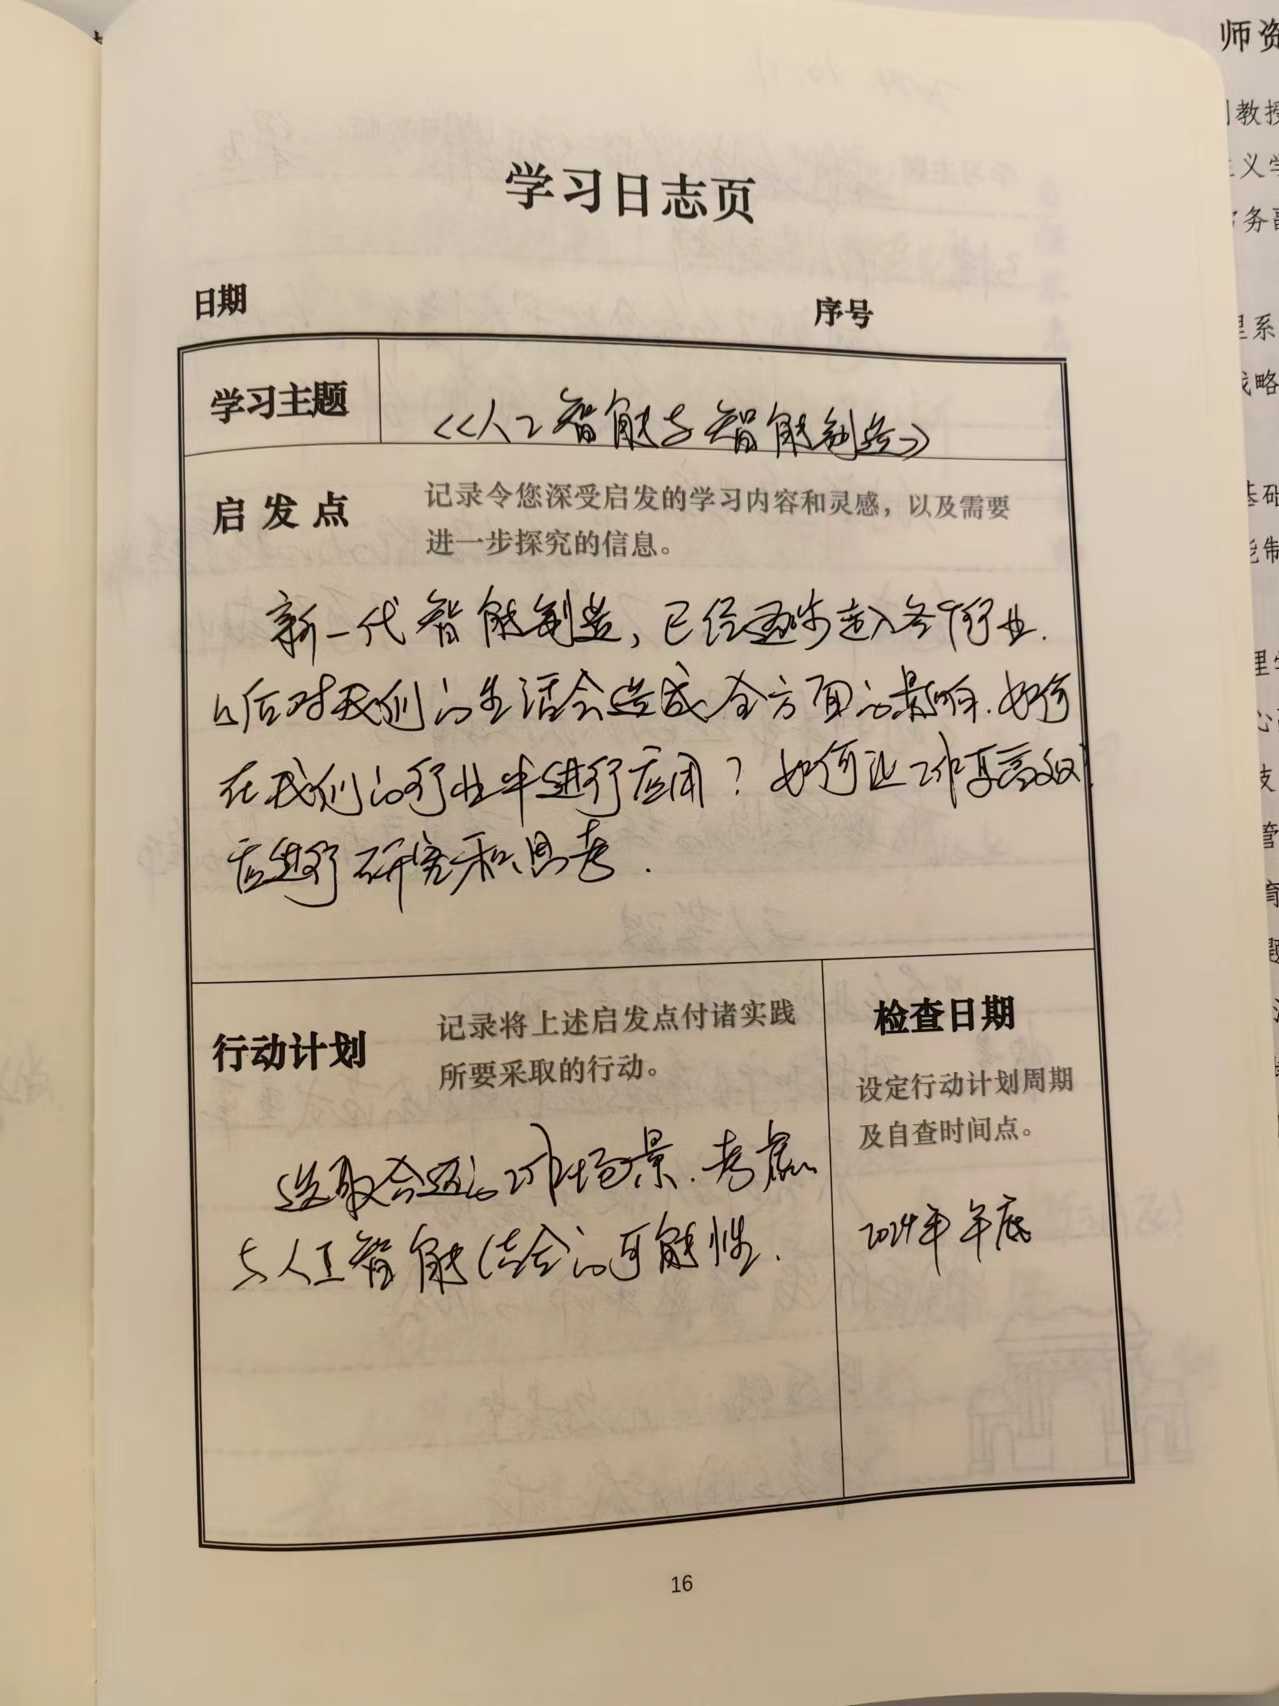 学习日志页
日期
序号
学习主题
《人工智能与智能制造》
启发点
记录令您深受启发的学习内容和灵感，以及需要
进一步探究的信息。
新一代智能制造，已经逐步走入各个行业.
以后对我们的生活会造成全方面的影响.如何
在我们的行业中进行应用？如何让工作更高效
后进行研究和思考.
行动计划
记录将上述启发点付诸实践
所要采取的行动。
选取合适的工作场景.考虑
与人工智能结合的可能性.
检查日期
设定行动计划周期
及自查时间点。
2024年年底
16
师资
教授
义学
务副
系
战略
基础
能制
理学
心
技
管
育
题